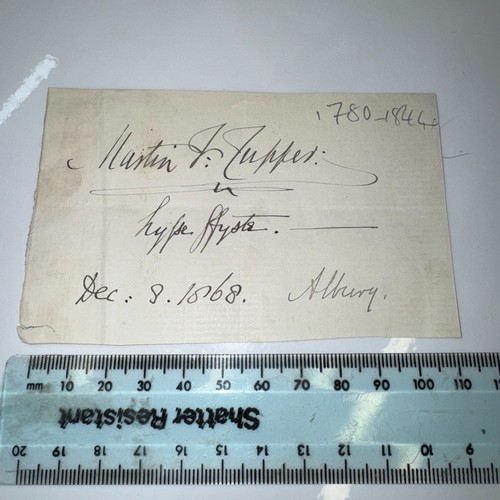 1780-1844
Martin F. Tupper:
Dec: 8. 1868. Albury.
mm 10 20 30 40 50 60 70 80 90 100 110
Shatter Resistant
20 19 18 17 16 15 14 13 12 11 10 9